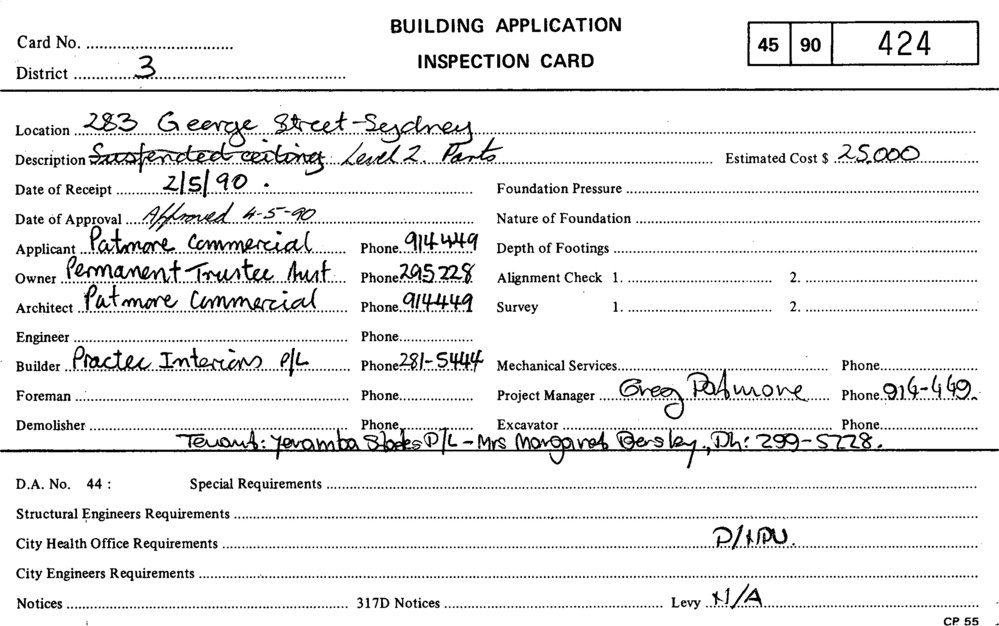 BUILDING APPLICATION
INSPECTION CARD
45 90 424
Card No.
District 3
Location 283 George Street-Sydney
Description Suspended ceiling Level 2. Parts Estimated Cost $ 25,000
Date of Receipt 2/5/90. Foundation Pressure
Date of Approval Approved 4-5-90 Nature of Foundation
Applicant Patmore Commercial Phone 914449 Depth of Footings
Owner Permanent Trustee Aust Phone 295228 Alignment Check 1. 2.
Architect Patmore Commercial Phone 914449 Survey 1. 2.
Engineer Phone
Builder Practec Interiors P/L Phone 281-5444 Mechanical Services Phone
Foreman Phone Project Manager Greg Patmore Phone 914-449.
Demolisher Phone Excavator Phone
Tenant: Yeramba P/L - Mrs Margaret Ph: 299-5228.
D.A. No. 44 : Special Requirements
Structural Engineers Requirements
City Health Office Requirements
City Engineers Requirements
Notices 317D Notices Levy N/A
CP 55